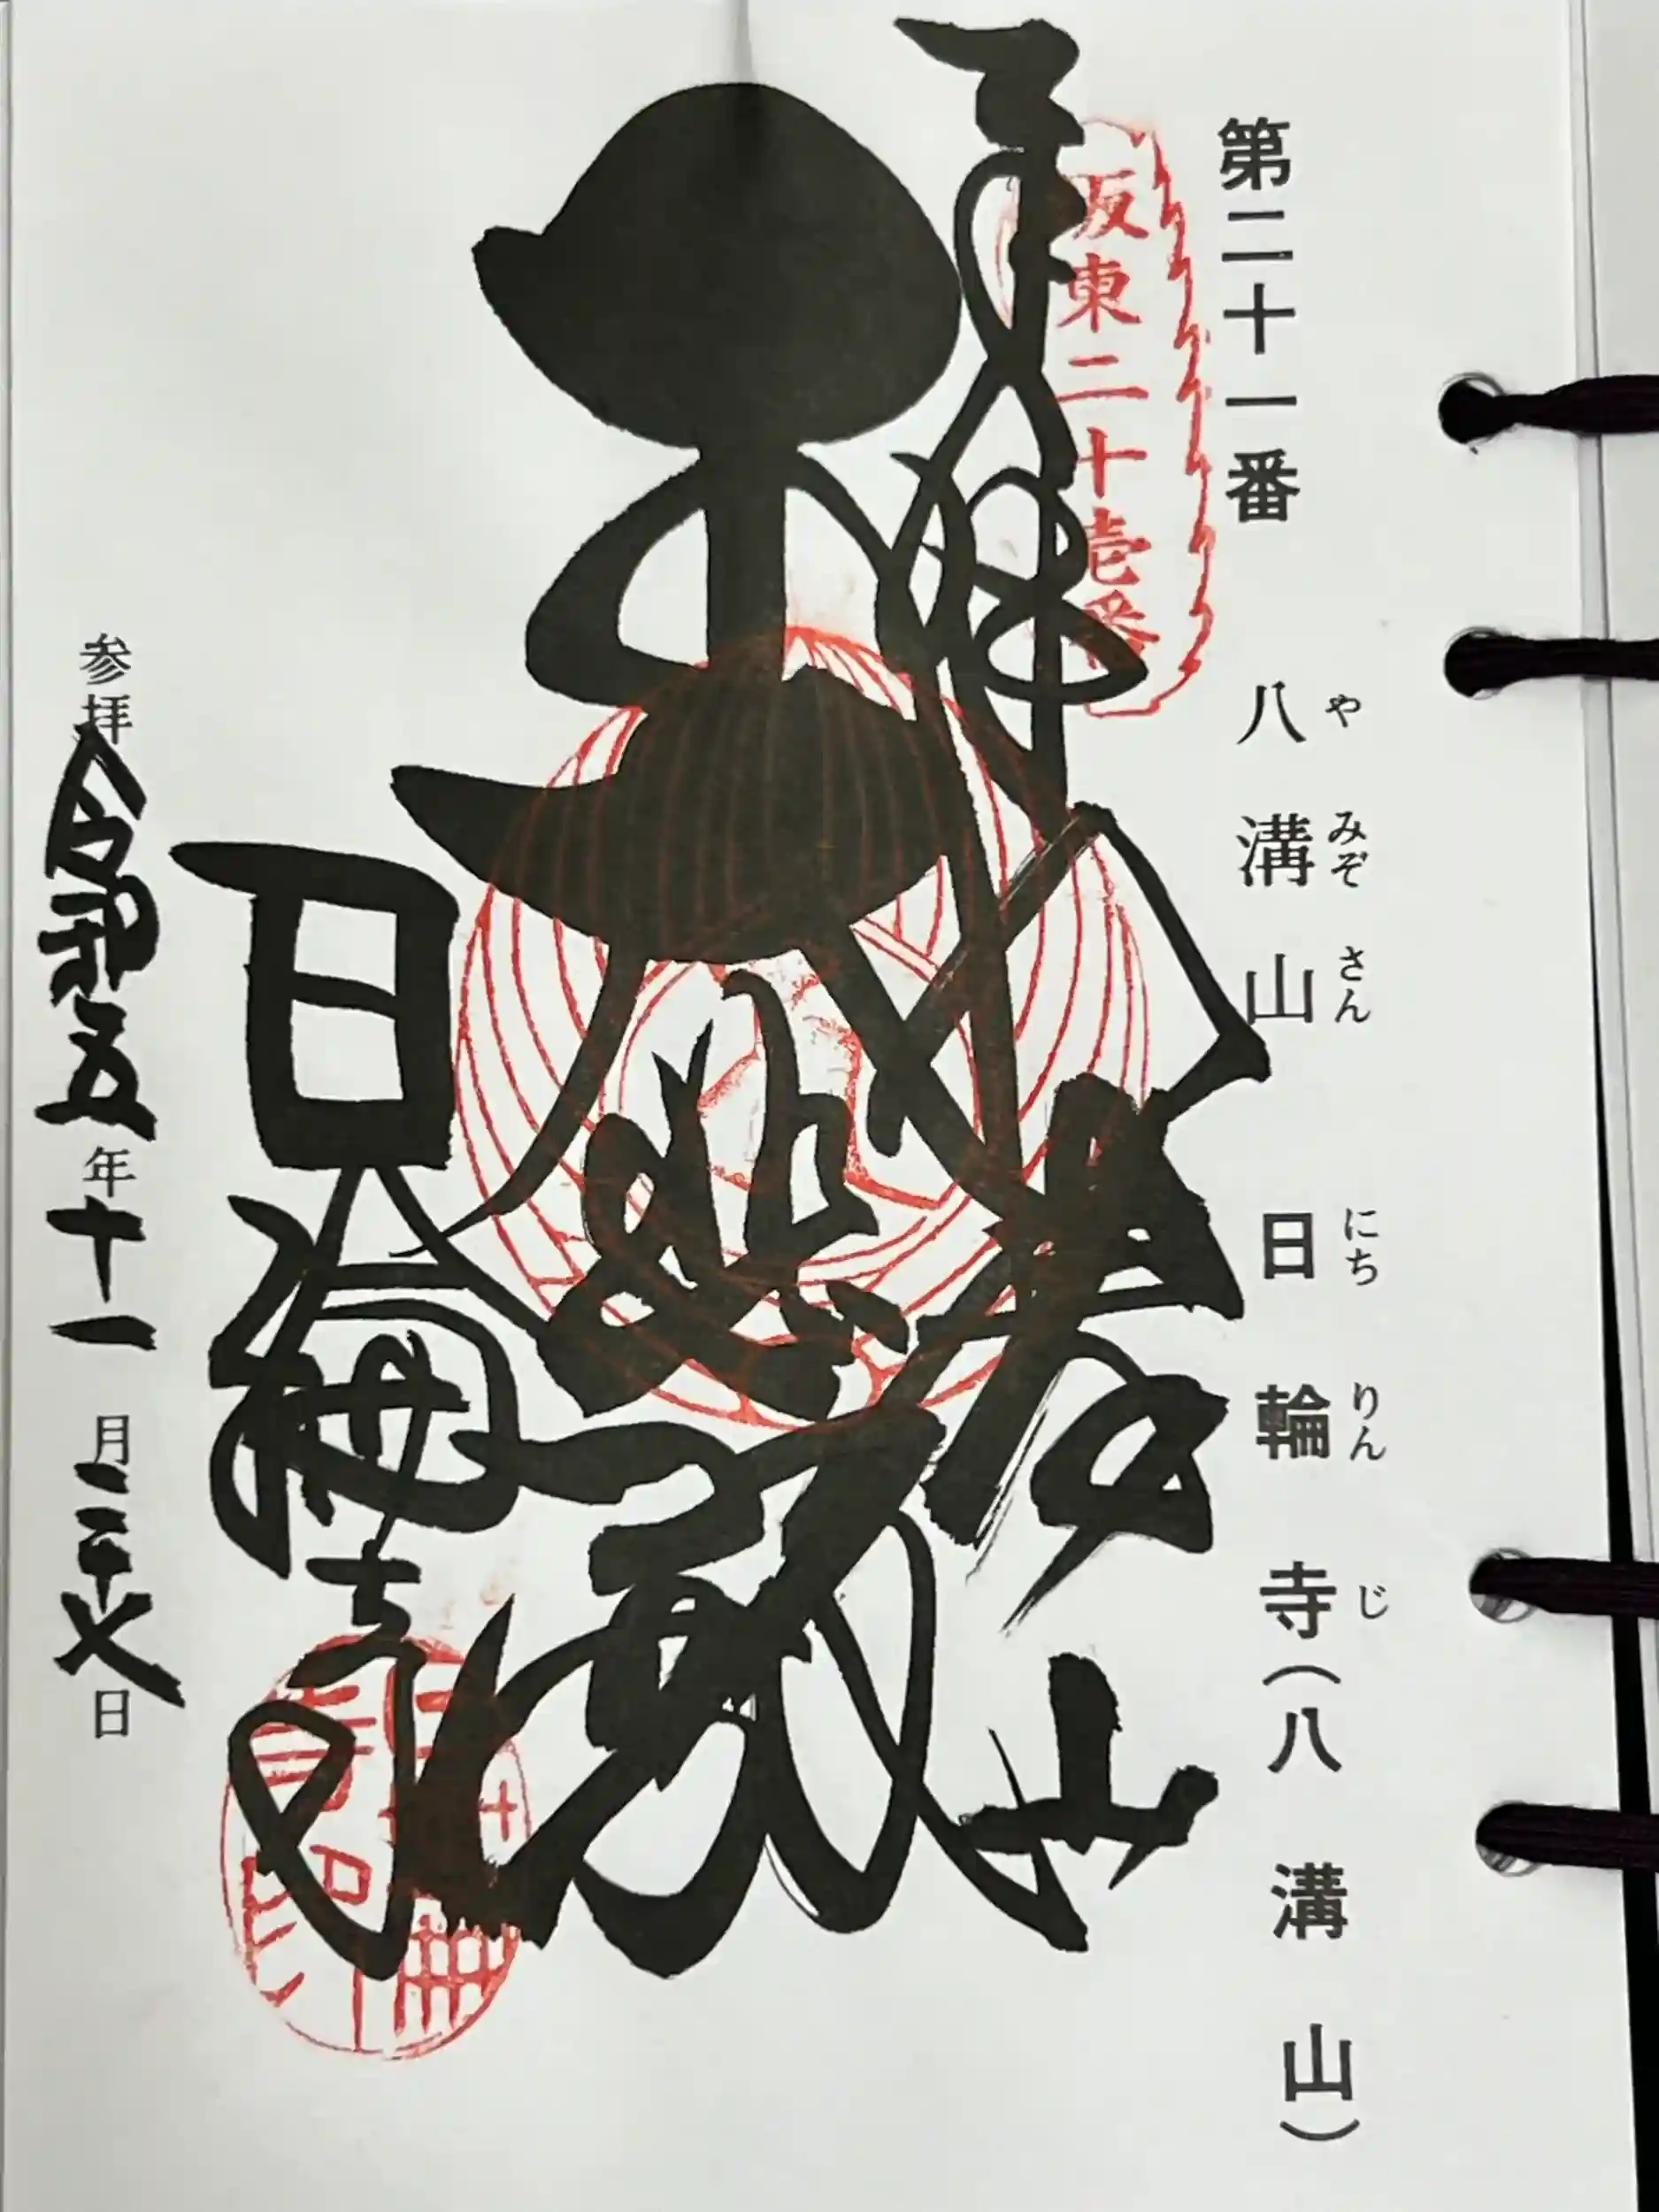 第二十一番 八溝山 日輪寺(八溝山)
や みぞ さん にち りん じ
坂東二十壱番
奉拝 八溝山
大悲殿
日輪寺
参拝 令和五年十一月二十八日